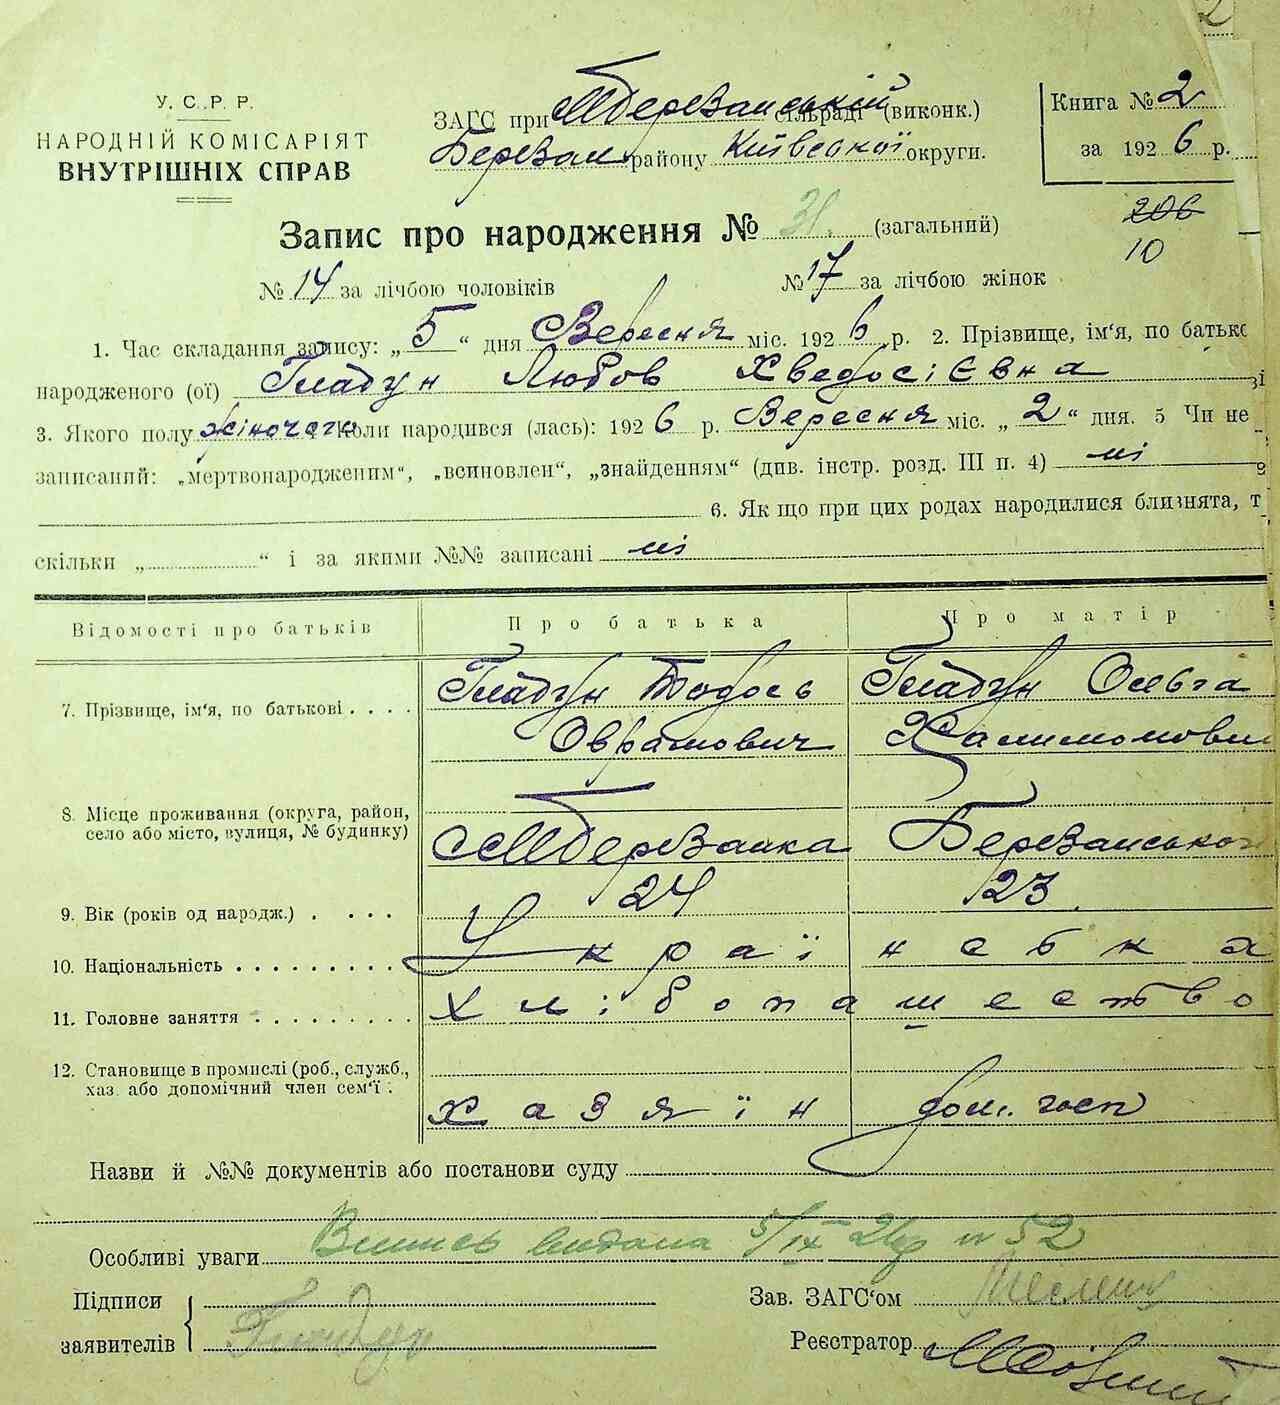 2
У. С. Р. Р.
НАРОДНІЙ КОМІСАРІЯТ
ВНУТРІШНІХ СПРАВ
ЗАГС при МБерезанській сільраді (виконк.)
Березан району Київської округи.
Книга № 2
за 1926 р.
Запис про народження № 31. (загальний)
206
10
№ 14 за лічбою чоловіків № 17 за лічбою жінок
1. Час складання запису: „ 5 “ дня Вересня міс. 1926 р. 2. Прізвище, ім‘я, по батько
народженого (ої) Гладун Любов Хведосієвна
3. Якого полу жіночого Коли народився (лась): 1926 р. Вересня міс. „ 2 “ дня. 5 Чи не
записаний: „мертвонародженим“, „всиновлен“, „знайденням“ (див. інстр. розд. III п. 4) ні
6. Як що при цих родах народилися близнята, т
скільки „ “ і за якими №№ записані ні
Відомості про батьків Про батька Про матір
7. Прізвище, ім‘я, по батькові Гладун Тодось Гладун Ольга
Оврамович Халимонови
8. Місце проживання (округа, район,
село або місто, вулиця, № будинку) МБерезанка Березанського
9. Вік (років од народж.) 24 23
10. Національність Українсбка
11. Головне заняття хлібопашество
12. Становище в промислі (роб., служб.,
хаз. або допомічний член сем‘ї. хазяїн дом. госп
Назви й №№ документів або постанови суду
Особливі уваги Випись видана 5/IX 26р № 52
Підписи
заявителів Гладун
Зав. ЗАГС‘ом
Реєстратор